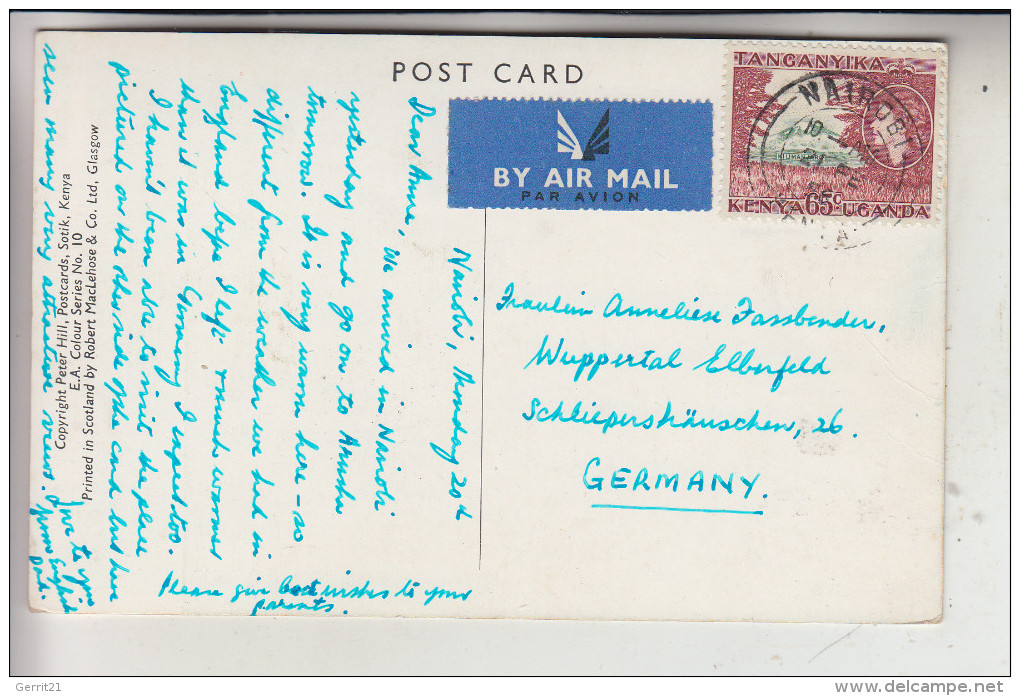 POST CARD
BY AIR MAIL
PAR AVION
TANGANYIKA
KILIMANJARO
KENYA 65c UGANDA
NAIROBI
Nairobi, Monday 20th
Dear Anne, We arrived in Nairobi
yesterday and go on to Arusha
tomorrow. It is very warm here - so
different from the weather we had in
England before I left & much warmer
than it was in Germany I expect too.
I haven't been able to visit the place
pictured on the other side of the card but have
seen many very attractive views.
Love to you
from English
Please give best wishes to your
parents.
Fräulein Anneliese Fassbender,
Wuppertal Elberfeld
Schliepershäuschen, 26.
GERMANY.
Copyright Peter Hill, Postcards, Sotik, Kenya
E.A. Colour Series No. 10
Printed in Scotland by Robert MacLehose & Co. Ltd, Glasgow
Gerrit21
www.delcampe.net